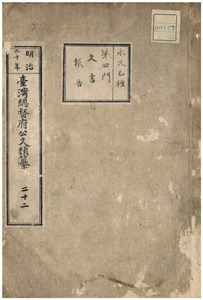 永久乙種
第四門
文書
報告
明治
三十年
臺灣總督府公文類纂
二十二